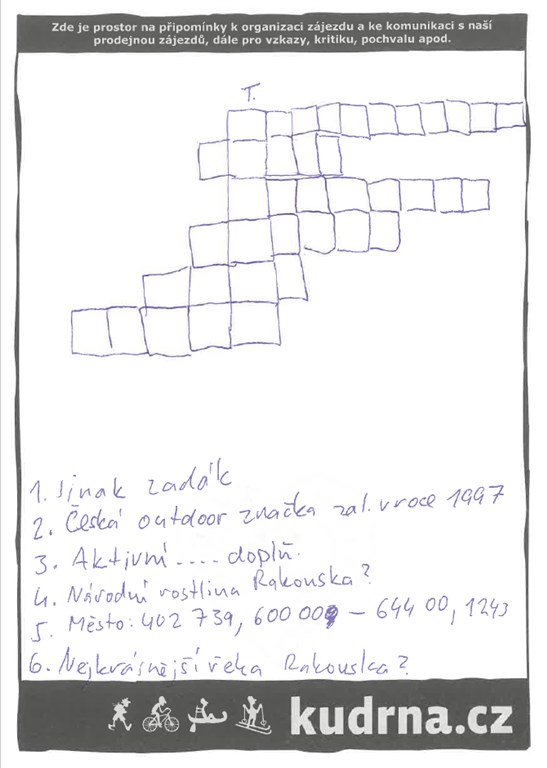 Zde je prostor na připomínky k organizaci zájezdu a ke komunikaci s naší
prodejnou zájezdů, dále pro vzkazy, kritiku, pochvalu apod.
T.
1. Jinak zadák
2. Česká outdoor značka zal. v roce 1997
3. Aktivní .... doplň.
4. Národní rostlina Rakouska?
5. Město: 402 739, 600 00 – 644 00, 1243
6. Nejkrásnější řeka Rakouska?
kudrna.cz